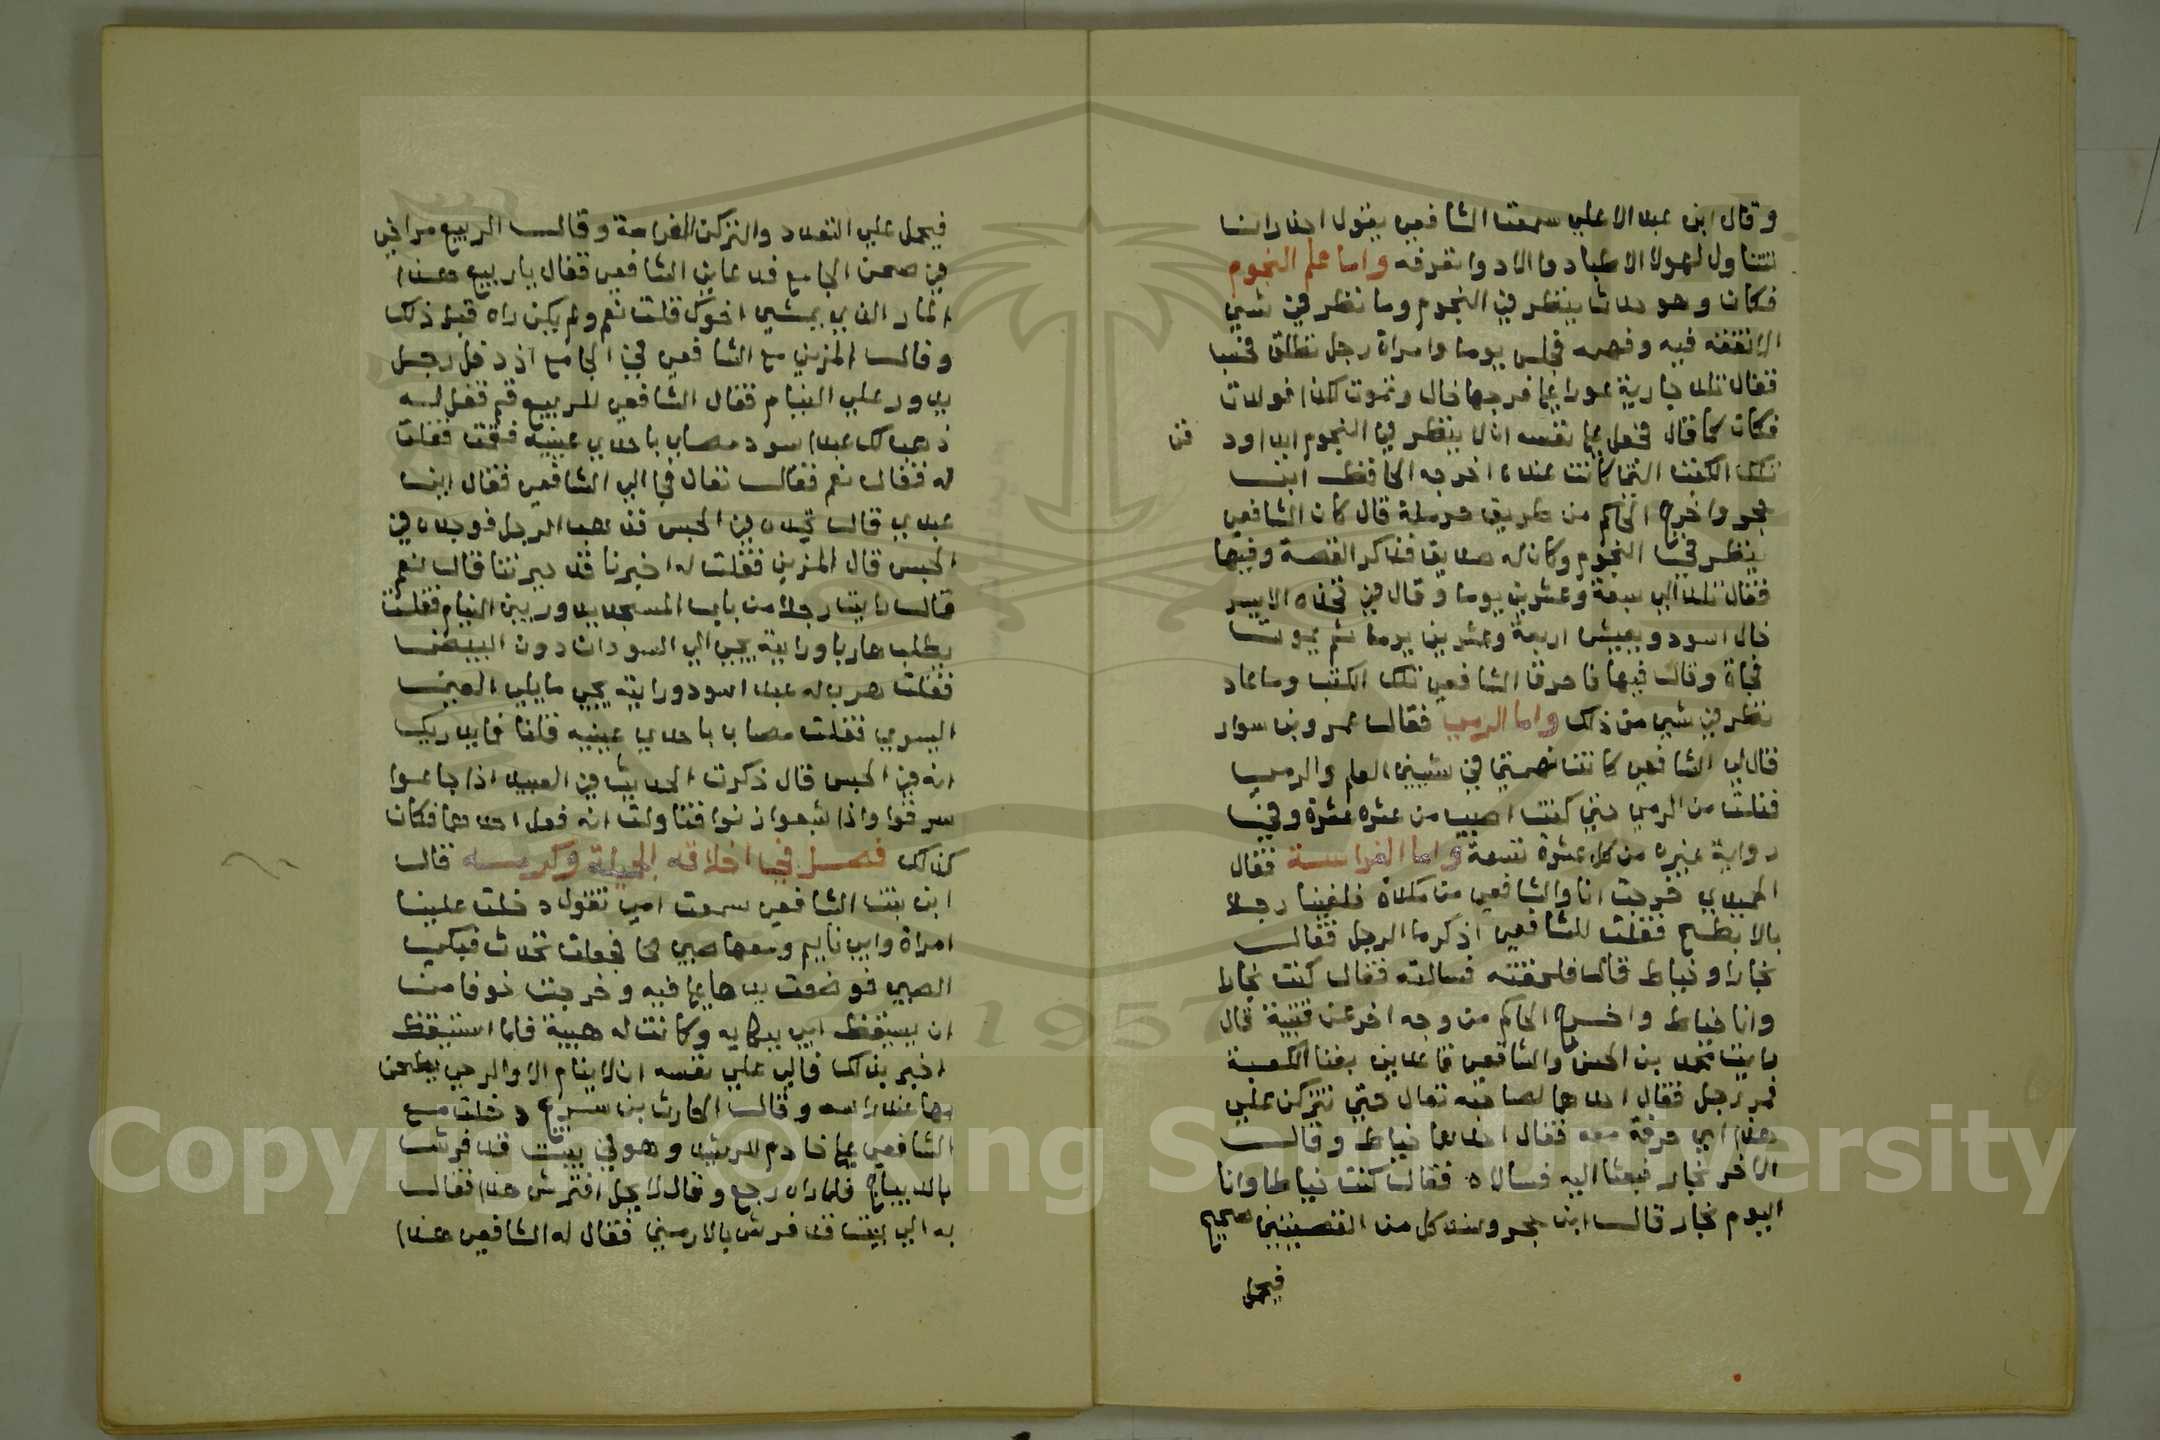 وقال ابن عبد الاعلي سمعت الشافعي يقول احذر ان
تتناول لهولا الاطباء دوا الا دوا تعرفه واما علم النجوم
فكان وهو حدث ينظر في النجوم وما نظر في شي
الا تفقه فيه وفهمه فجلس يوما وامراة رجل تطلق فحسب
فقال تلد جارية عورا علي فرجها خال وتموت لكذا فولدت
فكان كما قال فجعل علي نفسه ان لا ينظر في النجوم ابدا ود فن
تلك الكتب التي كانت عنده اخرجه الحافظ ابن
حجر واخرج الحاكم من طريق حرملة قال كان الشافعي
ينظر في النجوم وكان له صديق فذكر القصة وفيها
فقال تلد الي سبعة وعشرين يوما وقال في فخذه الايسر
خال اسود ويعيش اربعة وعشرين يوما ثم يموت
فجاة وقال فيها فاحرق الشافعي تلك الكتب وما عاد
نظر في شي من ذلك واما الرمي فقال عمرو بن سواد
قال لي الشافعي كانت نهمتي في شيين العلم والرمي
فنلت من الرمي حتي كنت اصيب من عشرة عشرة وفي
رواية غيره من كل عشرة تسعة واما الفراسة فقال
الحميدي خرجت انا والشافعي من مكة فلقينا رجلا
بالابطح فقلت للشافعي اذكر ما الرجل فقال
نجارا و خياط قال فلحقته فسالته فقال كنت نجارا
وانا خياط واخرج الحاكم من وجه اخر عن قتيبة قال
رايت محمد بن الحسن والشافعي قاعدين بفنا الكعبة
فمر رجل فقال احدهما لصاحبه تعال حتي نتزكن علي
هذا اي حرفة معه فقال احدهما خياط وقال
الاخر نجار فبعثا اليه فسالاه فقال كنت خياطا وانا
اليوم نجار قال ابن حجر وسند كل من القصتين صحيح
فيحمل
فيحمل علي التعدد والتزكن الفراسة وقال الربيع مر اخي
في صحن الجامع فدعاني الشافعي فقال يا ربيع هذا
المار الذي يمشي اخوك قلت نعم ولم يكن راه قبل ذلك
وقال المزني مع الشافعي في الجامع اذ دخل رجل
يدور علي النيام فقال الشافعي للربيع قم فقل له
ذهب لك عبد اسود مصاب باحدي عينيه فقمت فقلت
له فقال نعم فقال تعال فجا الي الشافعي فقال اين
عبدي قال تجده في الحبس فذهب الرجل فوجده في
الحبس قال المزني فقلت له اخبرنا فقد حيرتنا قال نعم
قال رايت رجلا من باب المسجد يدور بين النيام فقلت
يطلب هاربا ورايته يجي الي السودان دون البيض
فقلت هرب له عبد اسود ورايته يجي ما يلي العين
اليسري فقلت مصاب باحدي عينيه قلنا فما يدريك
انه في الحبس قال ذكرت الحديث في العبيد اذا جاعوا
سرقوا واذا شبعوا زنوا فتاولت انه فعل احدهما فكان
كذلك فصل في اخلاقه الجميلة وكرمه قال
ابن بنت الشافعي سمعت امي تقول دخلت علينا
امراة وابي نايم ومعها صبي فجعلت تحدث فبكي
الصبي فوضعت يدها علي فيه وخرجت خوفا من
ان يستيقظ ابي ببكايه وكانت له هيبة فلما استيقظ
اخبر بذلك فالي علي نفسه ان لا ينام الا والرحي يطحن
بها عند راسه وقال الحارث بن سريج دخلت مع
الشافعي علي خادم للرشيد وهو في بيت قد فرش
بالديباج فلما راه رجع وقال لا يحل افتراش هذا فقال
به الي بيت قد فرش بالارمني فقال له الشافعي هذا